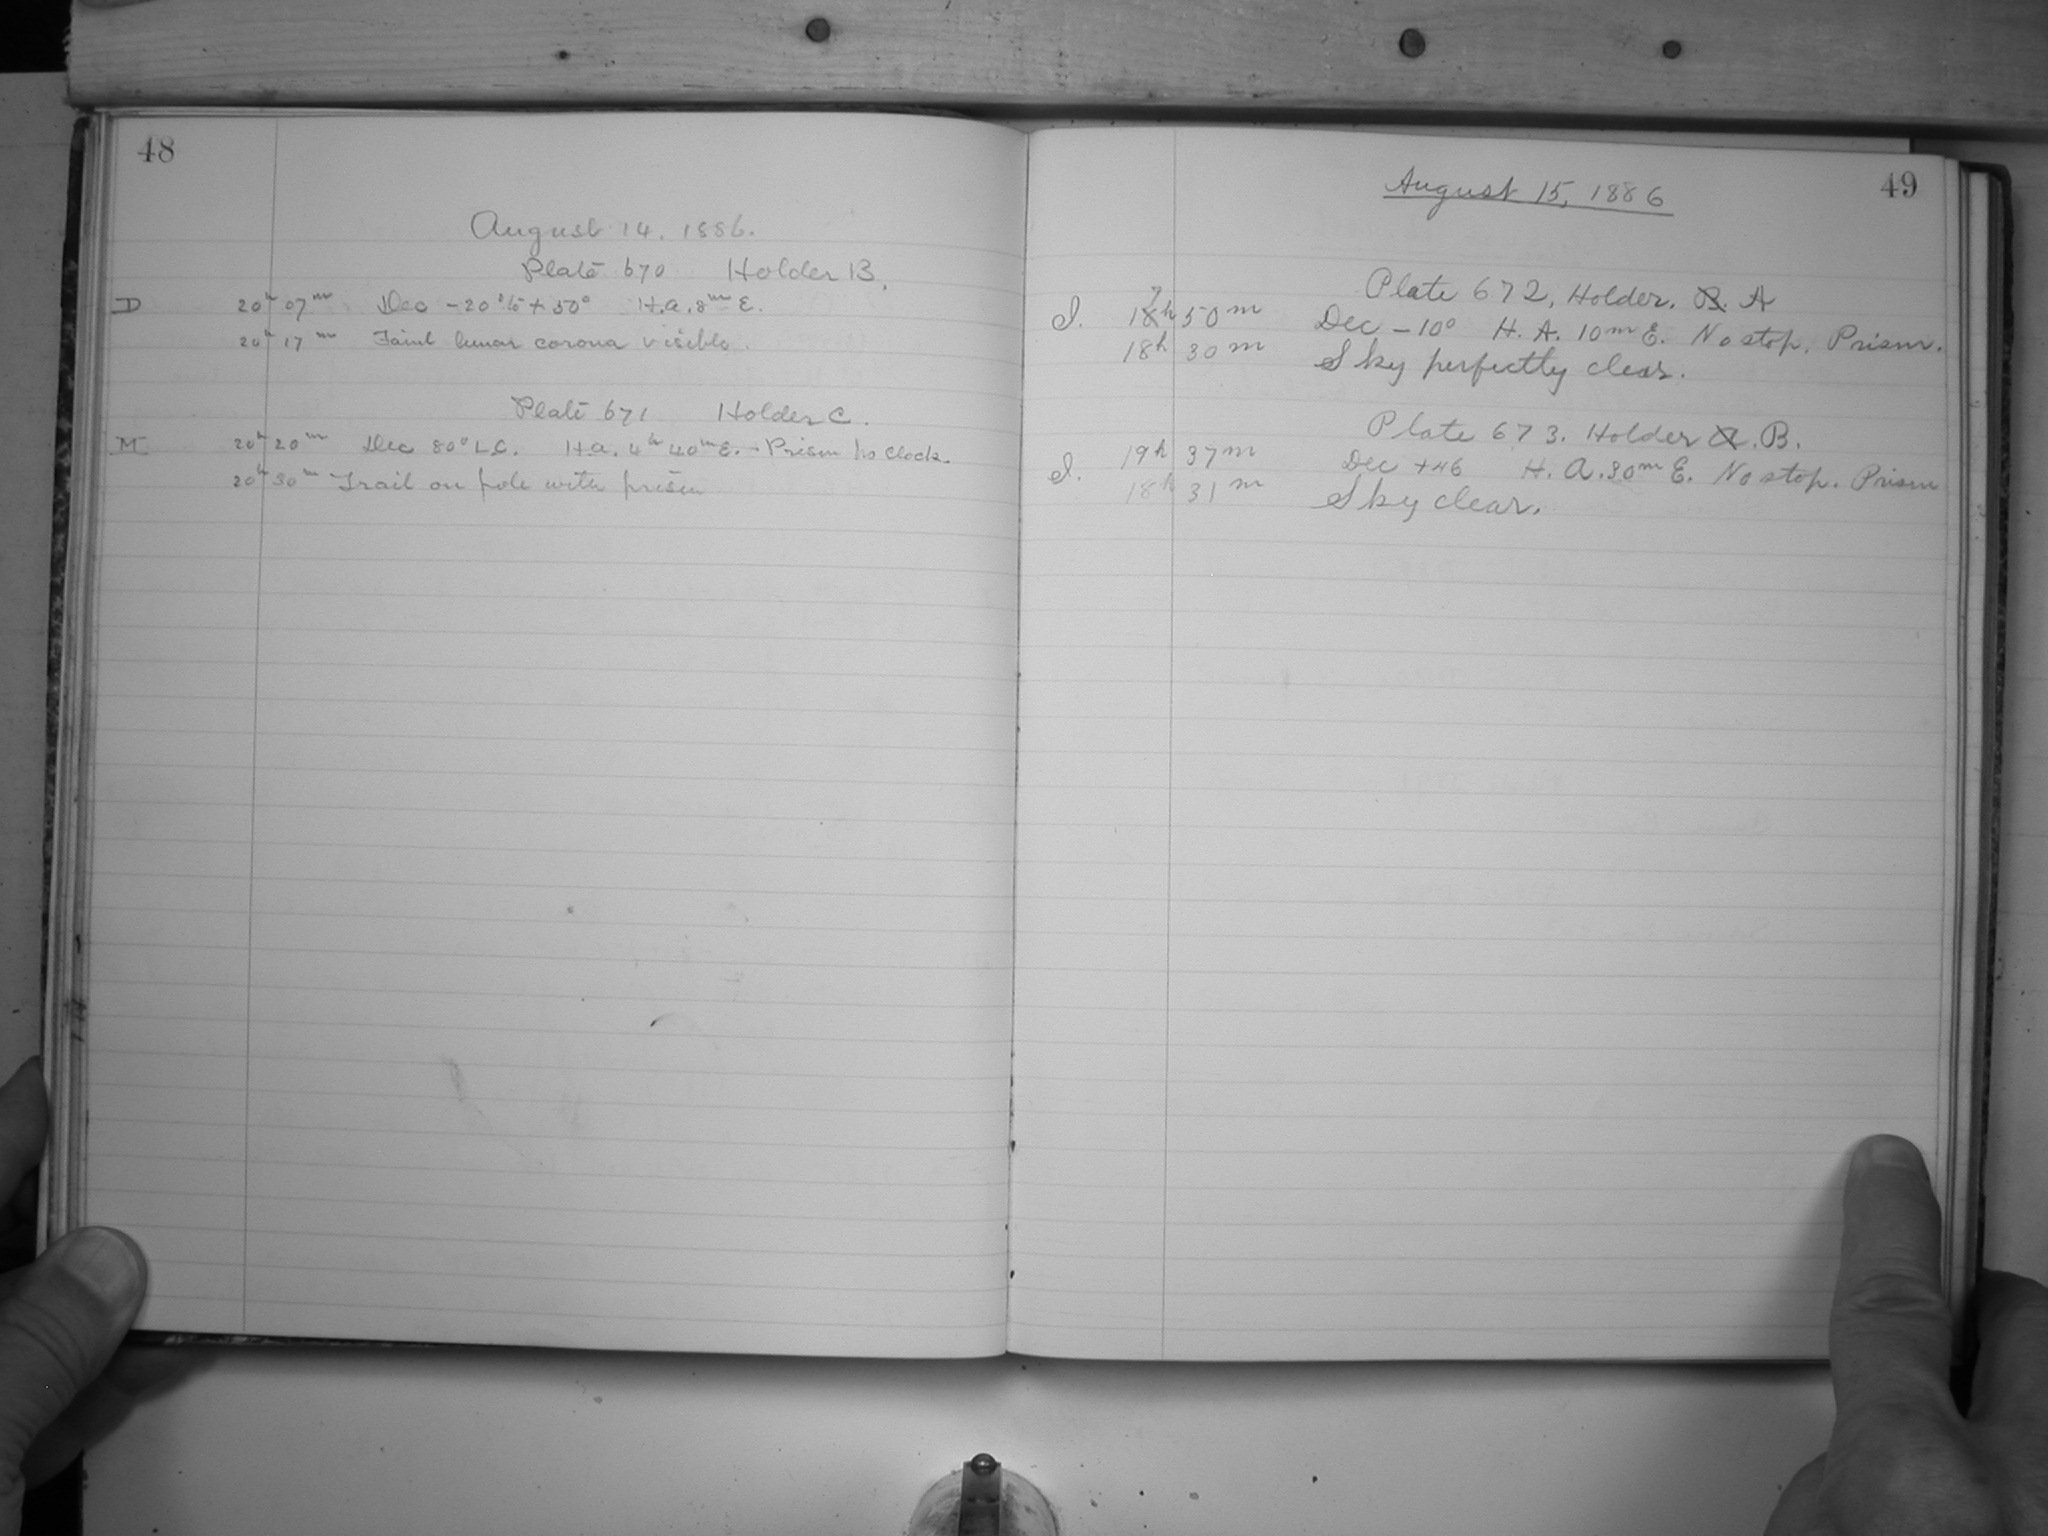 48
August 14, 1886.
Plate 670 Holder B.
D 20h 07m Dec -20° to + 50° H.a. 8m E.
20h 17m Faint lunar corona visible.
Plate 671 Holder C.
M 20h 20m Dec 80° L.C. H.a. 4h 40m E. - Prism No clock.
20h 30m Trail on pole with prism
49
August 15, 1886
Plate 672, Holder. A
I. 17h 50m Dec -10° H. A. 10m E. No stop. Prism.
18h 30m Sky perfectly clear.
Plate 673. Holder B.
I. 19h 37m Dec +46 H. A. 30m E. No stop. Prism
18h 31m Sky clear.